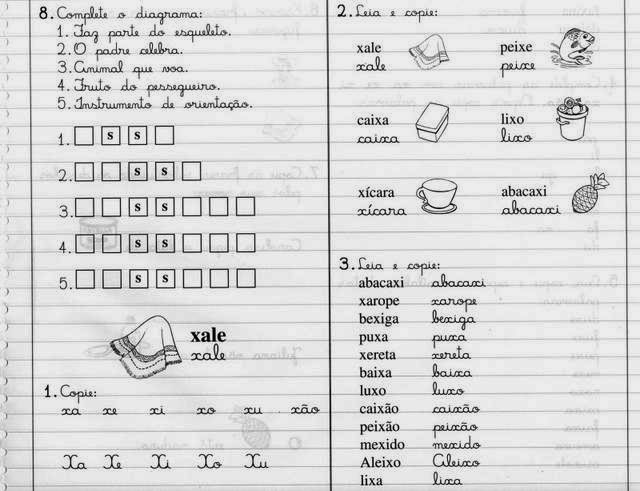 8. Complete o diagrama:
1. Faz parte do esqueleto.
2. O padre celebra.
3. Animal que voa.
4. Fruto do pessegueiro.
5. Instrumento de orientação.
1. s s
2. s s
3. s s
4. s s
5. s s
xale
xale
1. Copie:
xa xe xi xo xu xão
Xa Xe Xi Xo Xu
2. Leia e copie:
xale peixe
xale peixe
caixa lixo
caixa lixo
xícara abacaxi
xícara abacaxi
3. Leia e copie:
abacaxi abacaxi
xarope xarope
bexiga bexiga
puxa puxa
xereta xereta
baixa baixa
luxo luxo
caixão caixão
peixão peixão
mexido mexido
Aleixo Aleixo
lixa lixa